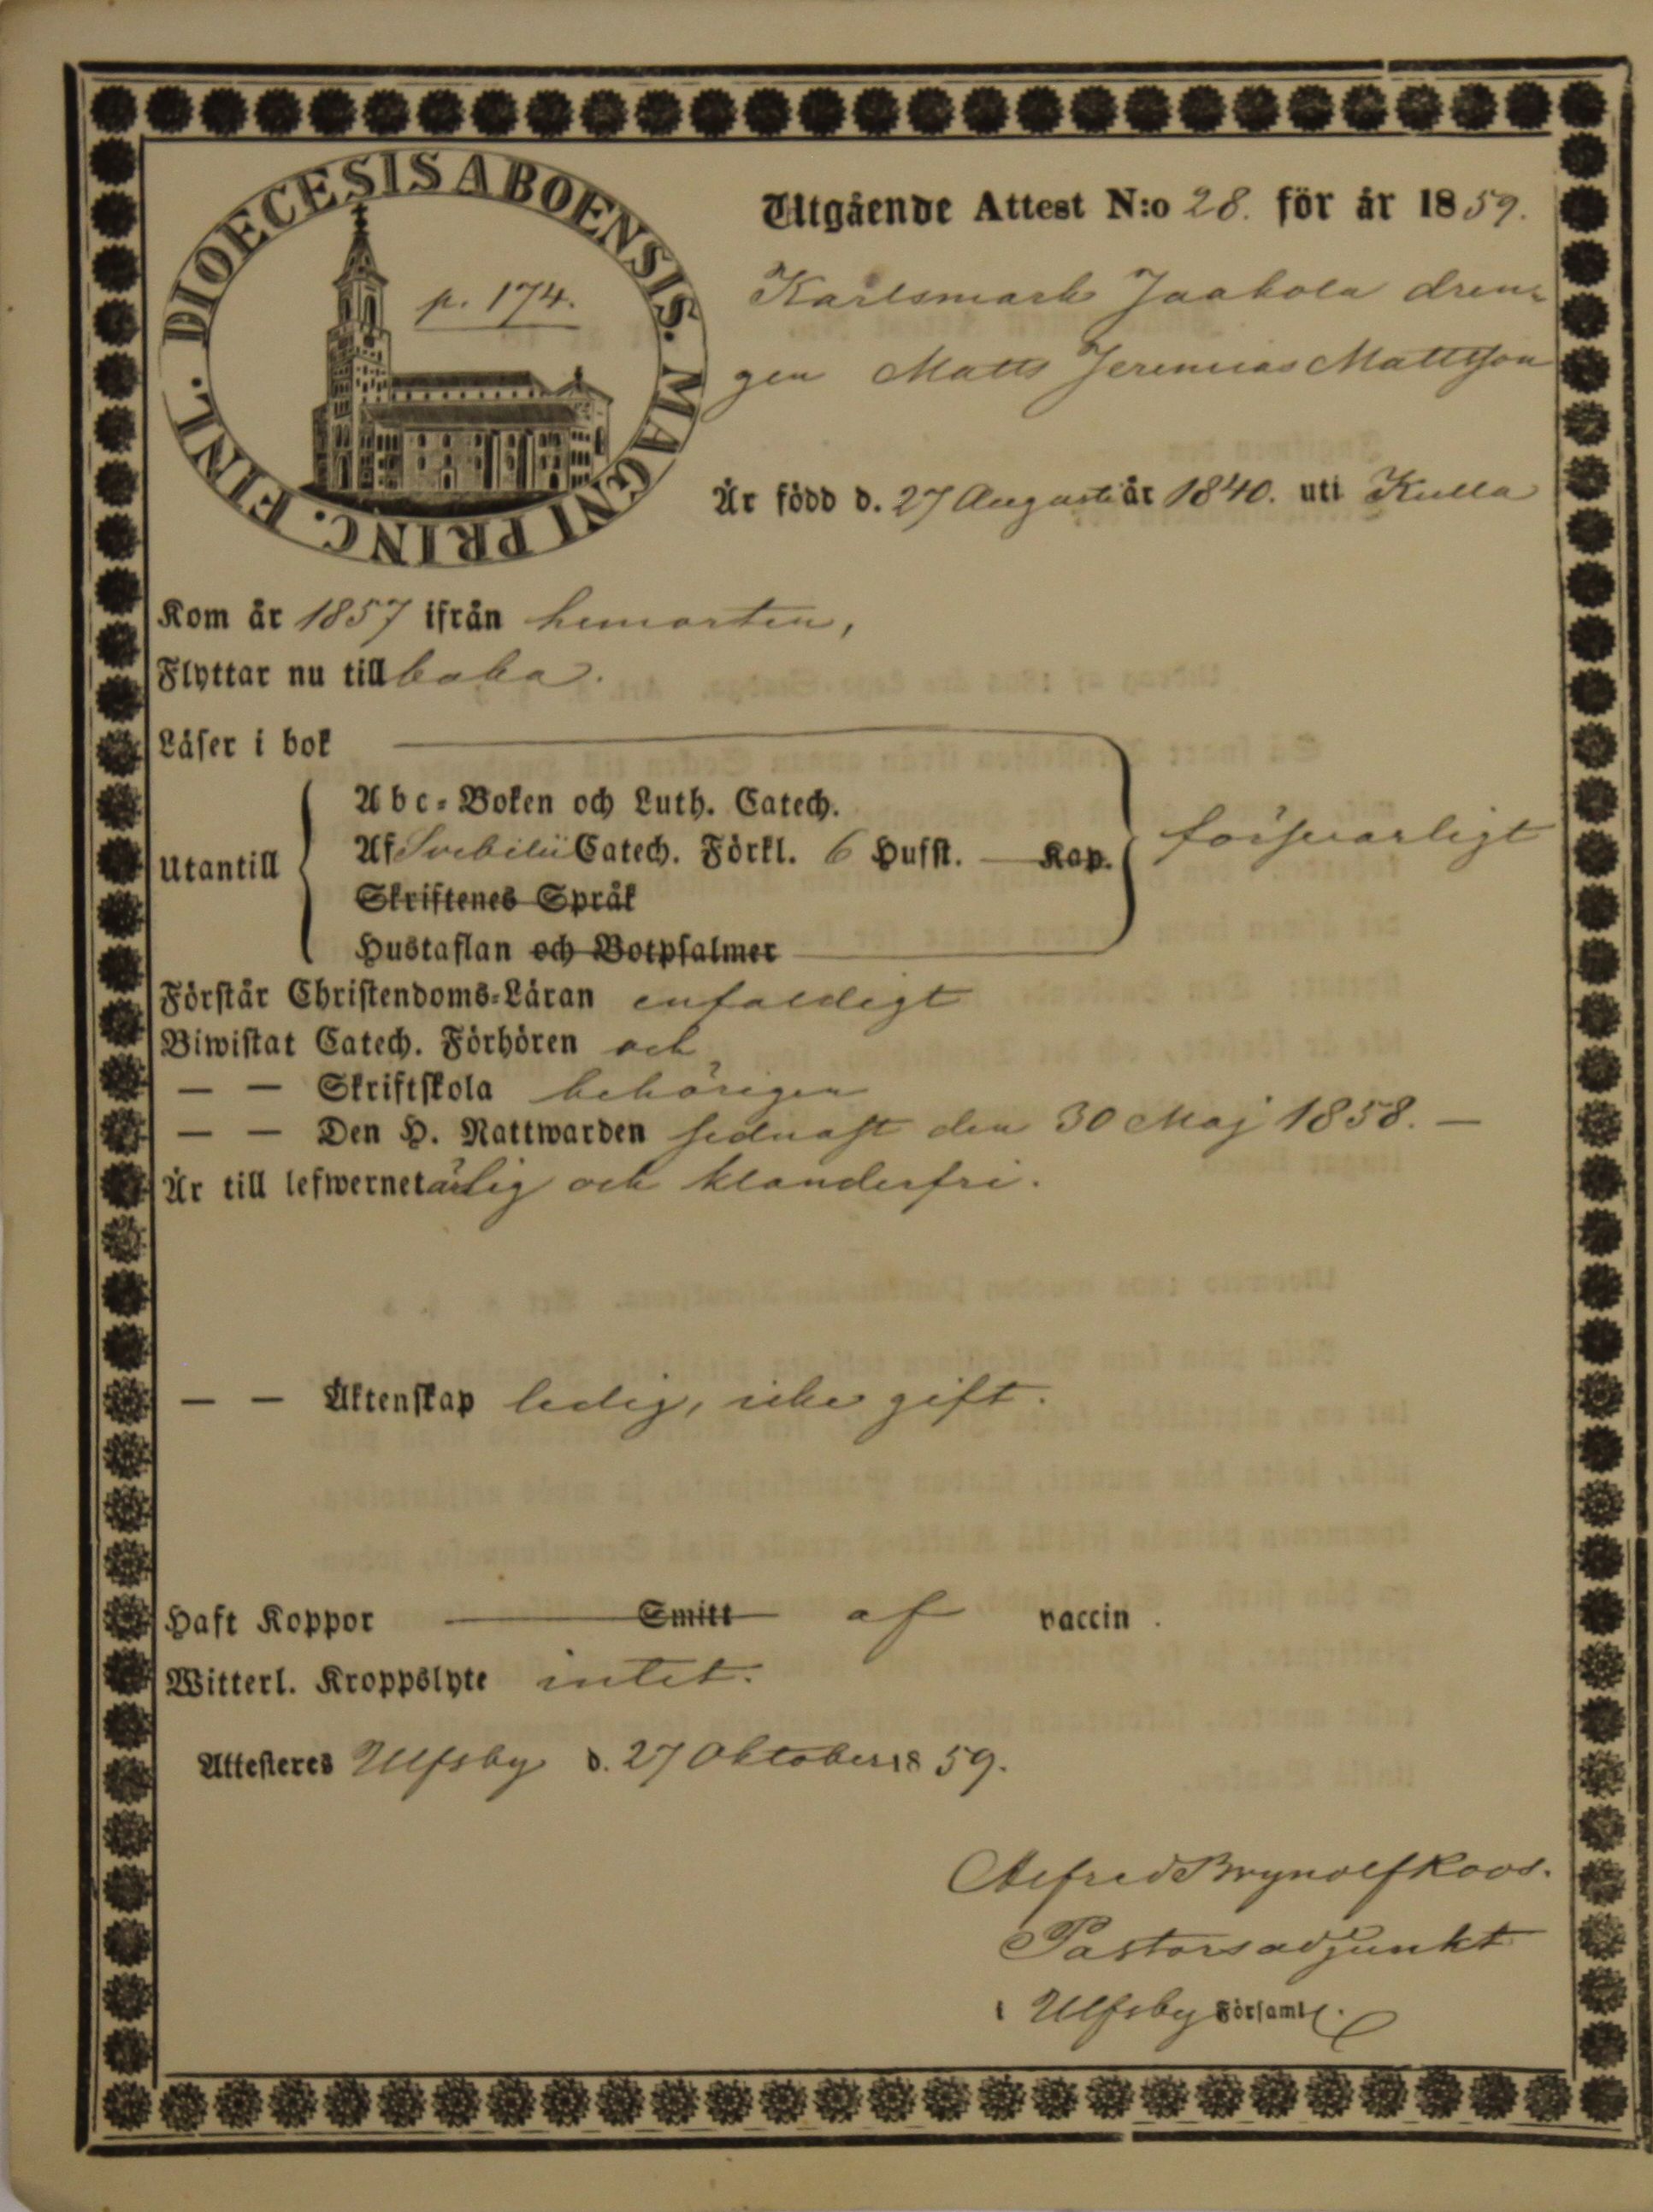 DIOECESIS ABOENSIS. MAGNI PRINC. FINL.
p. 174.
Utgående Attest N:o 28. för år 1859.
Karlsmark Jaakola drän-
gen Matts Jeremias Mattsson
Är född d. 27 Augusti år 1840. uti Kulla
Kom år 1857 ifrån hemorten,
Flyttar nu tillbaka.
Läser i bok
Abc-Boken och Luth. Catech.
Utantill
Af Svebilii Catech. Förkl. 6 Hufst. Kap.
försvarligt
Skriftenes Språk
Hustaflan och Botpsalmer
Förstår Christendoms-Läran enfaldigt
Biwistat Catech. Förhören och
— — Skriftskola behörigen
— — Den H. Nattwarden sednast den 30 Maj 1858. —
Är till lefwernet ärlig och klanderfri.
— — Äktenskap ledig, icke gift.
Haft Koppor Smitt af vaccin.
Witterl. Kroppslyte intet.
Attesteres Ulfsby d. 27 Oktober 1859.
Alfred Brynolf Roos.
Pastorsadjunkt
i Ulfsby Församl.